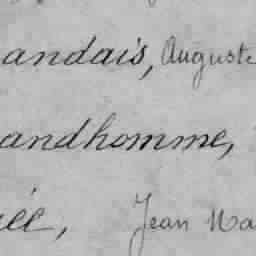 andais, Auguste
andhomme,
Jean Ma